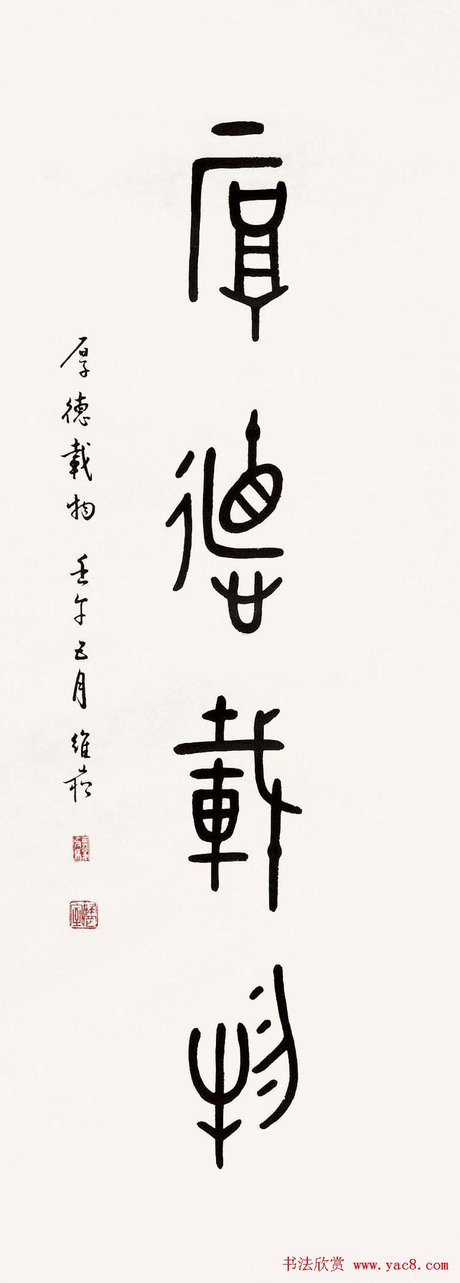 厚德載物
厚德載物 壬午五月 維菘
书法欣赏 www.yac8.com